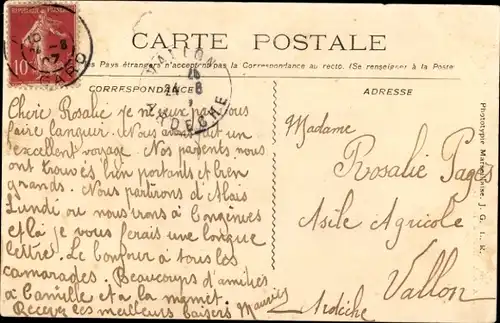 CARTE POSTALE
Pays étrangers n'acceptent pas la Correspondance au recto. (Se renseigner à la Poste
CORRESPONDANCE
ADRESSE
10
GARD
VALLON
24 8
ARDECHE
Chère Rosalie je ne veux pas vous
faire languir. Nous avons fait un
excellent voyage. Nos parents nous
ont trouvés bien portants et bien
grands. Nous partirons d'Alais
Lundi ou nous irons à
et là je vous ferais une longue
lettre. Le bonjour à tous les
camarades. Beaucoups d'amitiés
à Camille et à la mémet.
Recevez les meilleurs baisers Maurice
Madame
Rosalie Pagès
Asile Agricole
Vallon
Ardèche
Phototypie Marseillaise, J. G. I. R.